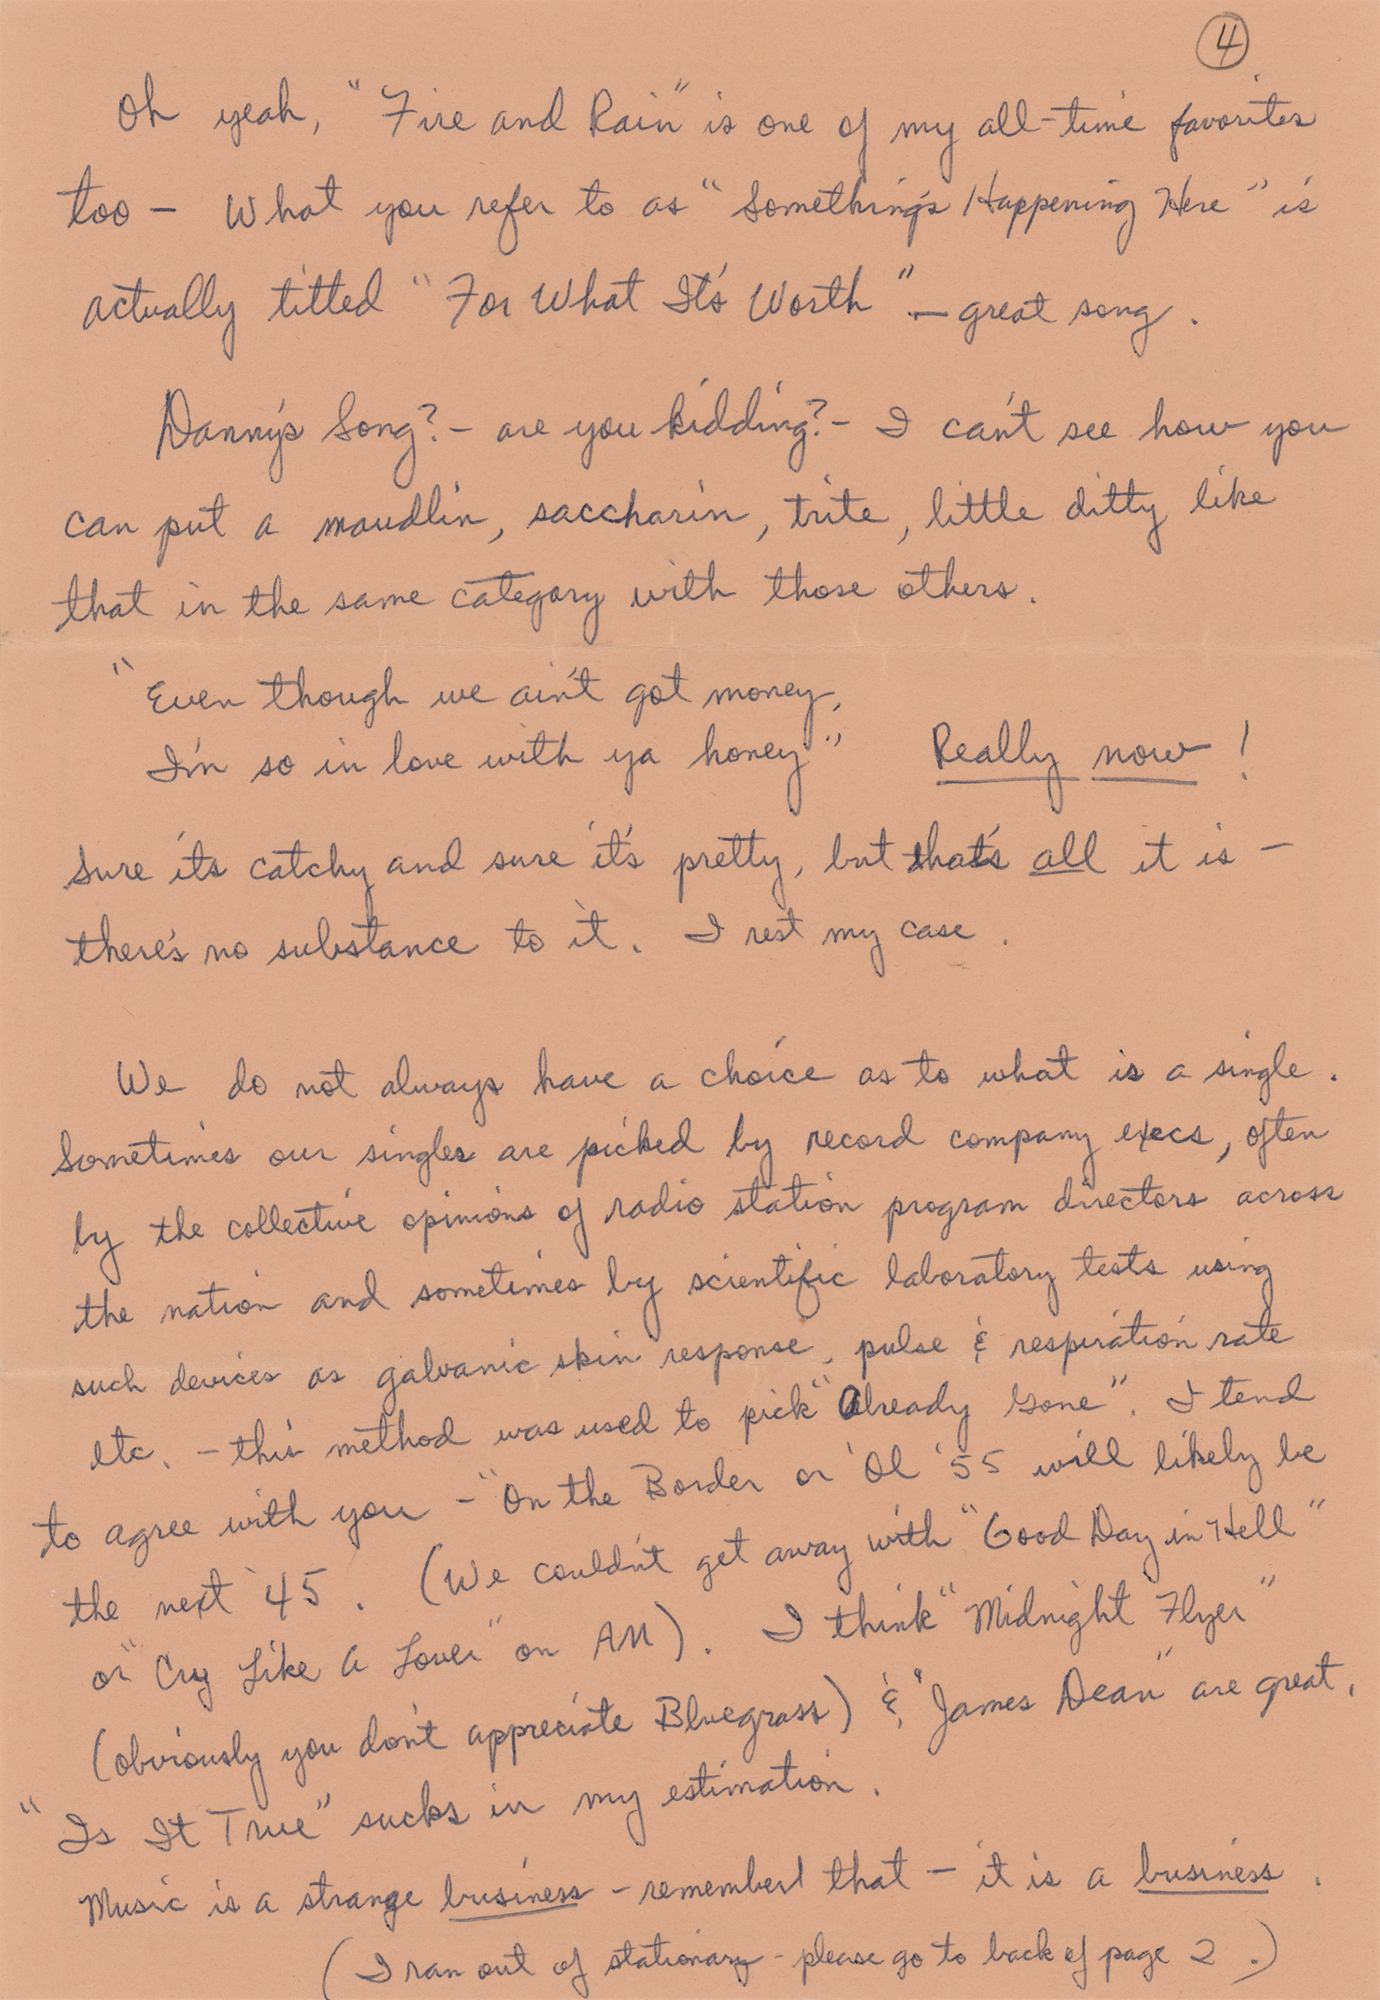 4
Oh yeah, "Fire and Rain" is one of my all-time favorites
too - What you refer to as "Something's Happening Here" is
actually titled "For What It's Worth" - great song.
Danny's Song? - are you kidding? - I can't see how you
can put a maudlin, saccharin, trite, little ditty like
that in the same category with those others.
"Even though we ain't got money,
I'm so in love with ya honey" Really now!
Sure it's catchy and sure it's pretty, but that's all it is -
there's no substance to it. I rest my case.
We do not always have a choice as to what is a single.
Sometimes our singles are picked by record company execs, often
by the collective opinions of radio station program directors across
the nation and sometimes by scientific laboratory tests using
such devices as galvanic skin response, pulse & respiration rate
etc. - this method was used to pick "Already Gone". I tend
to agree with you - "On the Border or 'Ol '55 will likely be
the next 45. (We couldn't get away with "Good Day in Hell"
or "Cry Like A Lover" on AM). I think "Midnight Flyer"
(obviously you don't appreciate Bluegrass) & "James Dean" are great,
"Is It True" sucks in my estimation.
Music is a strange business - remember that - it is a business.
(I ran out of stationary - please go to back of page 2.)